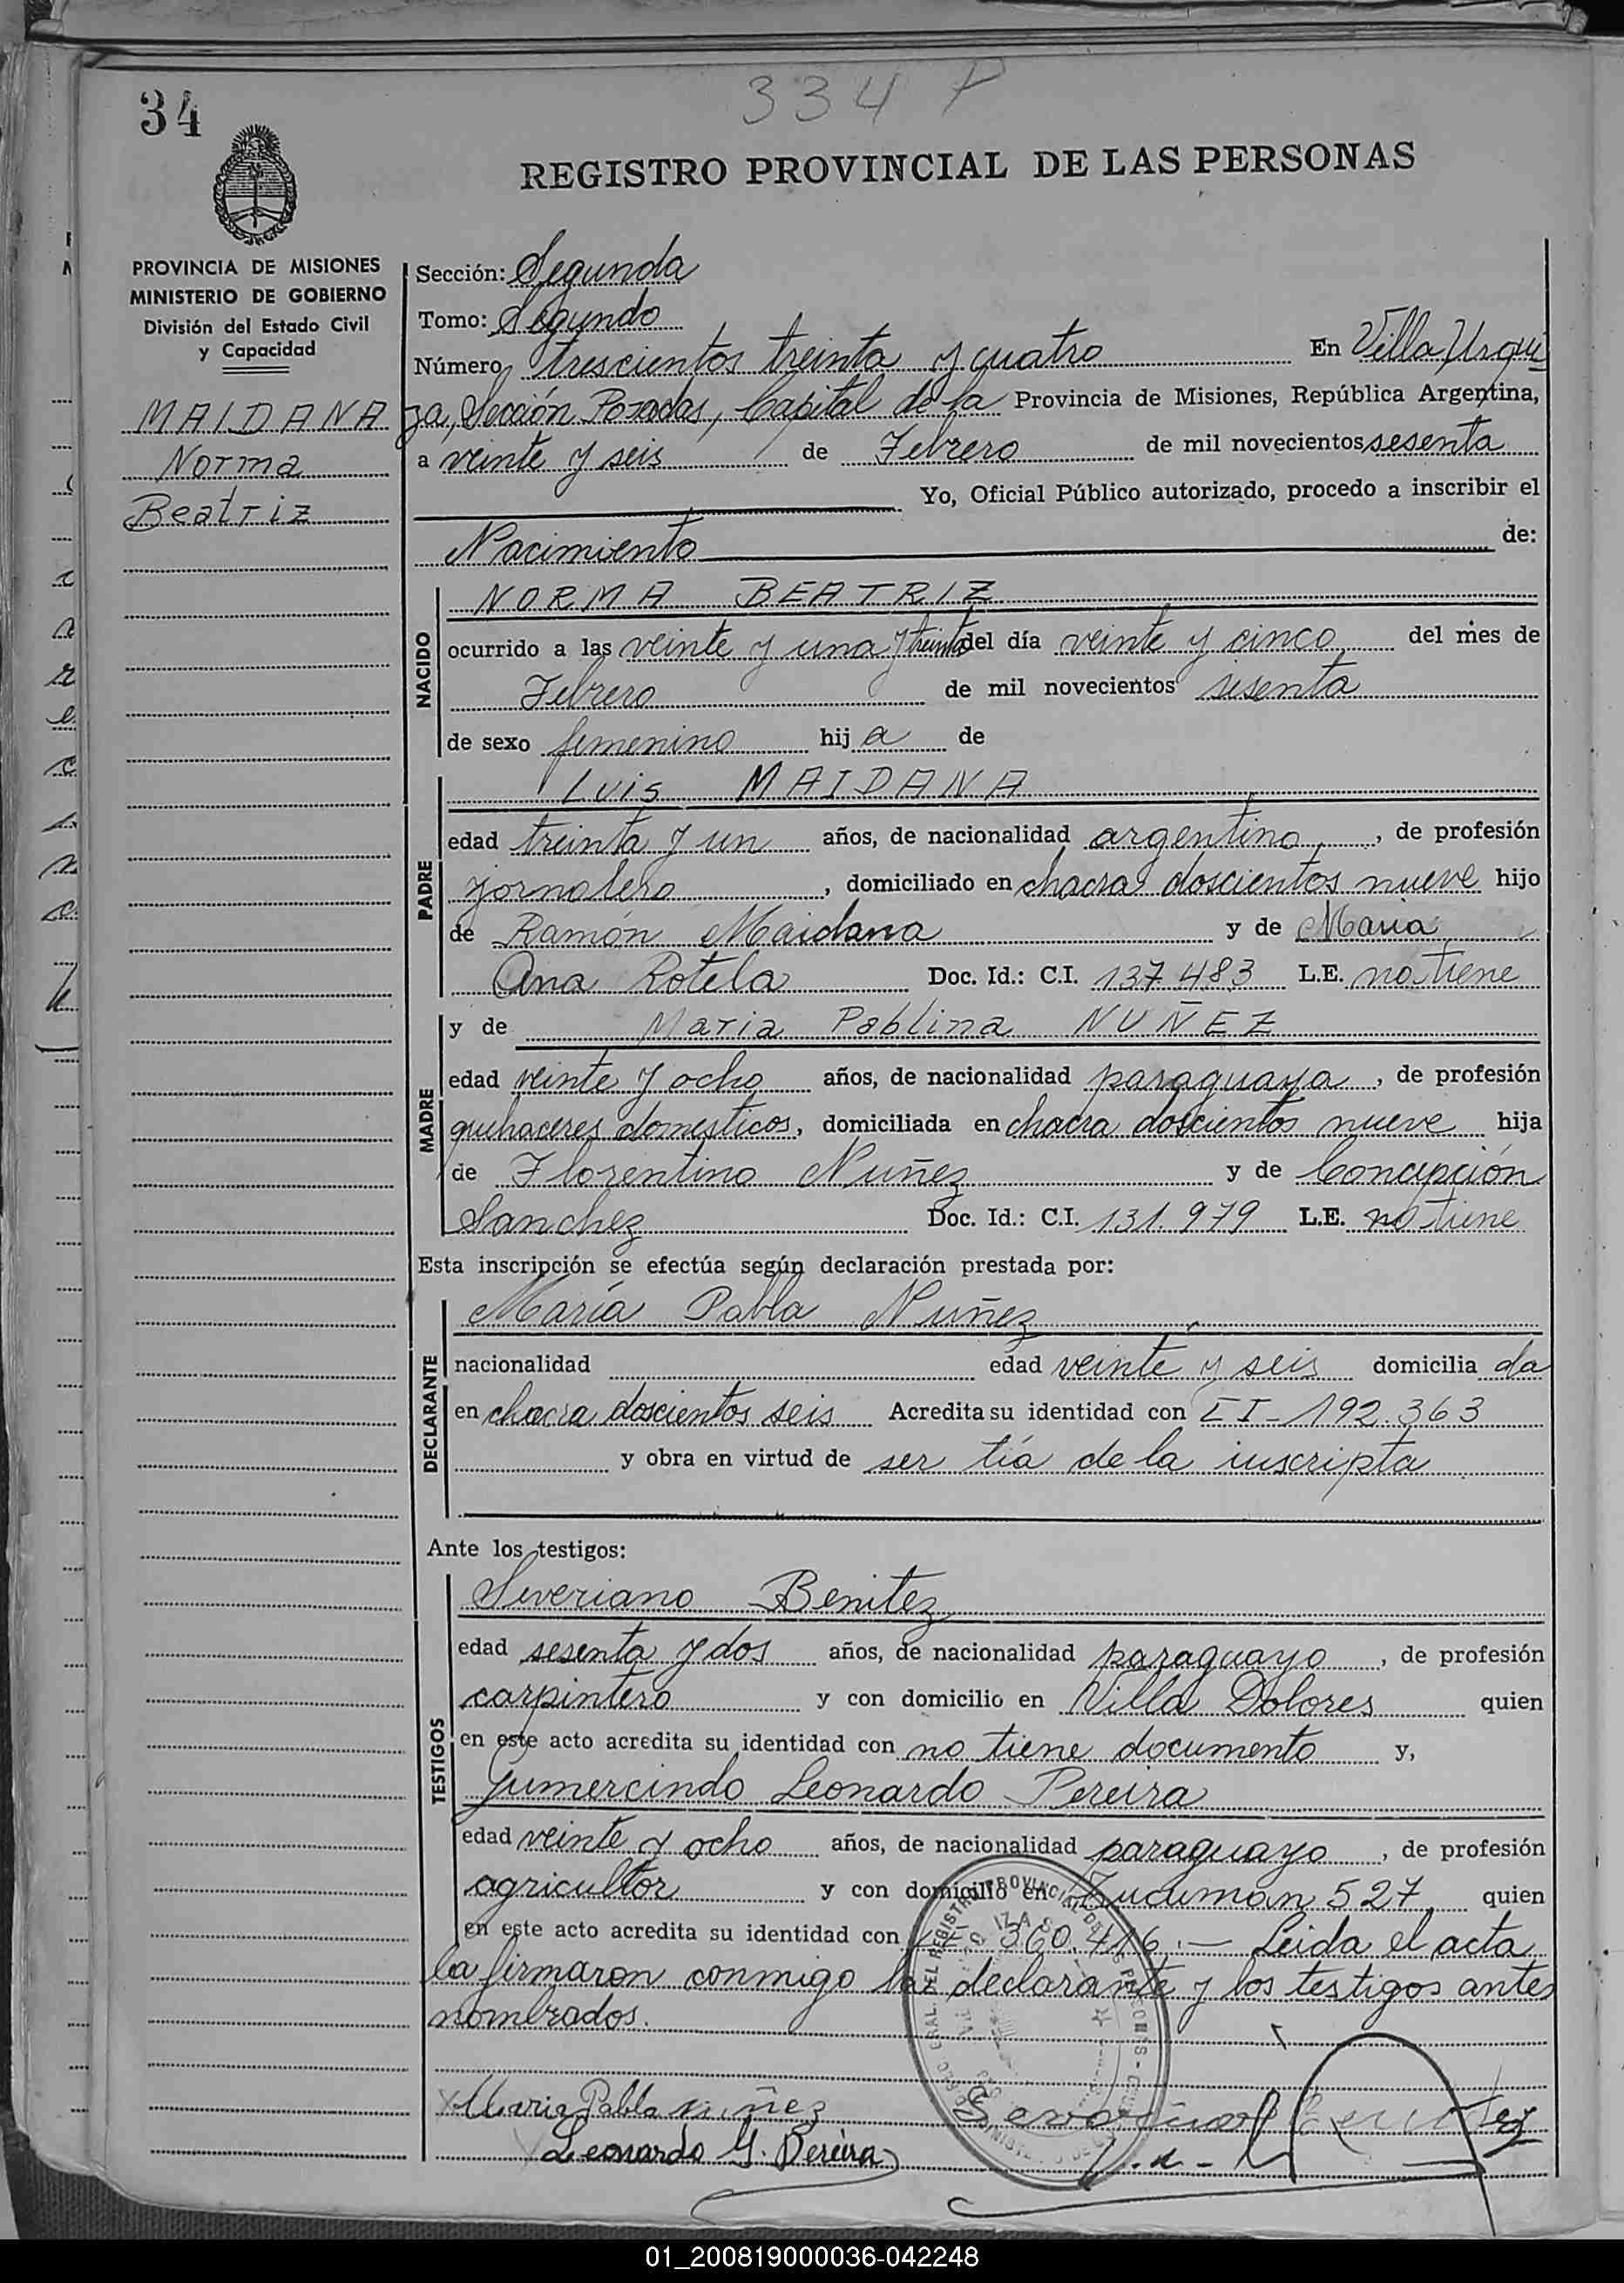 34
334 P
REGISTRO PROVINCIAL DE LAS PERSONAS
PROVINCIA DE MISIONES
MINISTERIO DE GOBIERNO
División del Estado Civil
y Capacidad
MAIDANA
Norma
Beatriz
Sección: Segunda
Tomo: Segundo
Número trescientos treinta y cuatro En Villa Urqui
za, Sección Posadas, Capital de la Provincia de Misiones, República Argentina,
a veinte y seis de Febrero de mil novecientos sesenta
Yo, Oficial Público autorizado, procedo a inscribir el
Nacimiento de:
NACIDO
NORMA BEATRIZ
ocurrido a las veinte y una y treinta del día veinte y cinco del mes de
Febrero de mil novecientos sesenta
de sexo femenino hij a de
PADRE
Luis MAIDANA
edad treinta y un años, de nacionalidad argentino, de profesión
jornalero, domiciliado en chacra doscientos nueve hijo
de Ramón Maidana y de Maria
Ana Rotela Doc. Id.: C.I. 137.483 L.E. no tiene
MADRE
y de Maria Pablina NUÑEZ
edad veinte y ocho años, de nacionalidad paraguaya, de profesión
quehaceres domésticos, domiciliada en chacra doscientos nueve hija
de Florentino Nuñez y de Concepción
Sanchez Doc. Id.: C.I. 131.979 L.E. no tiene
Esta inscripción se efectúa según declaración prestada por:
DECLARANTE
María Pabla Nuñez
nacionalidad edad veinte y seis domicilia da
en chacra doscientos seis Acredita su identidad con CI-192.363
y obra en virtud de ser tía de la inscripta
Ante los testigos:
TESTIGOS
Severiano Benitez
edad sesenta y dos años, de nacionalidad paraguayo, de profesión
carpintero y con domicilio en Villa Dolores quien
en este acto acredita su identidad con no tiene documento y,
Gumercindo Leonardo Pereira
edad veinte y ocho años, de nacionalidad paraguayo, de profesión
agricultor y con domicilio en Tucuman 527 quien
en este acto acredita su identidad con 360.416.- Leida el acta
la firmaron conmigo la declarante y los testigos antes
nombrados.
Maria Pabla nuñez
Severiano Benitez
Leonardo G. Pereira
01_200819000036-042248